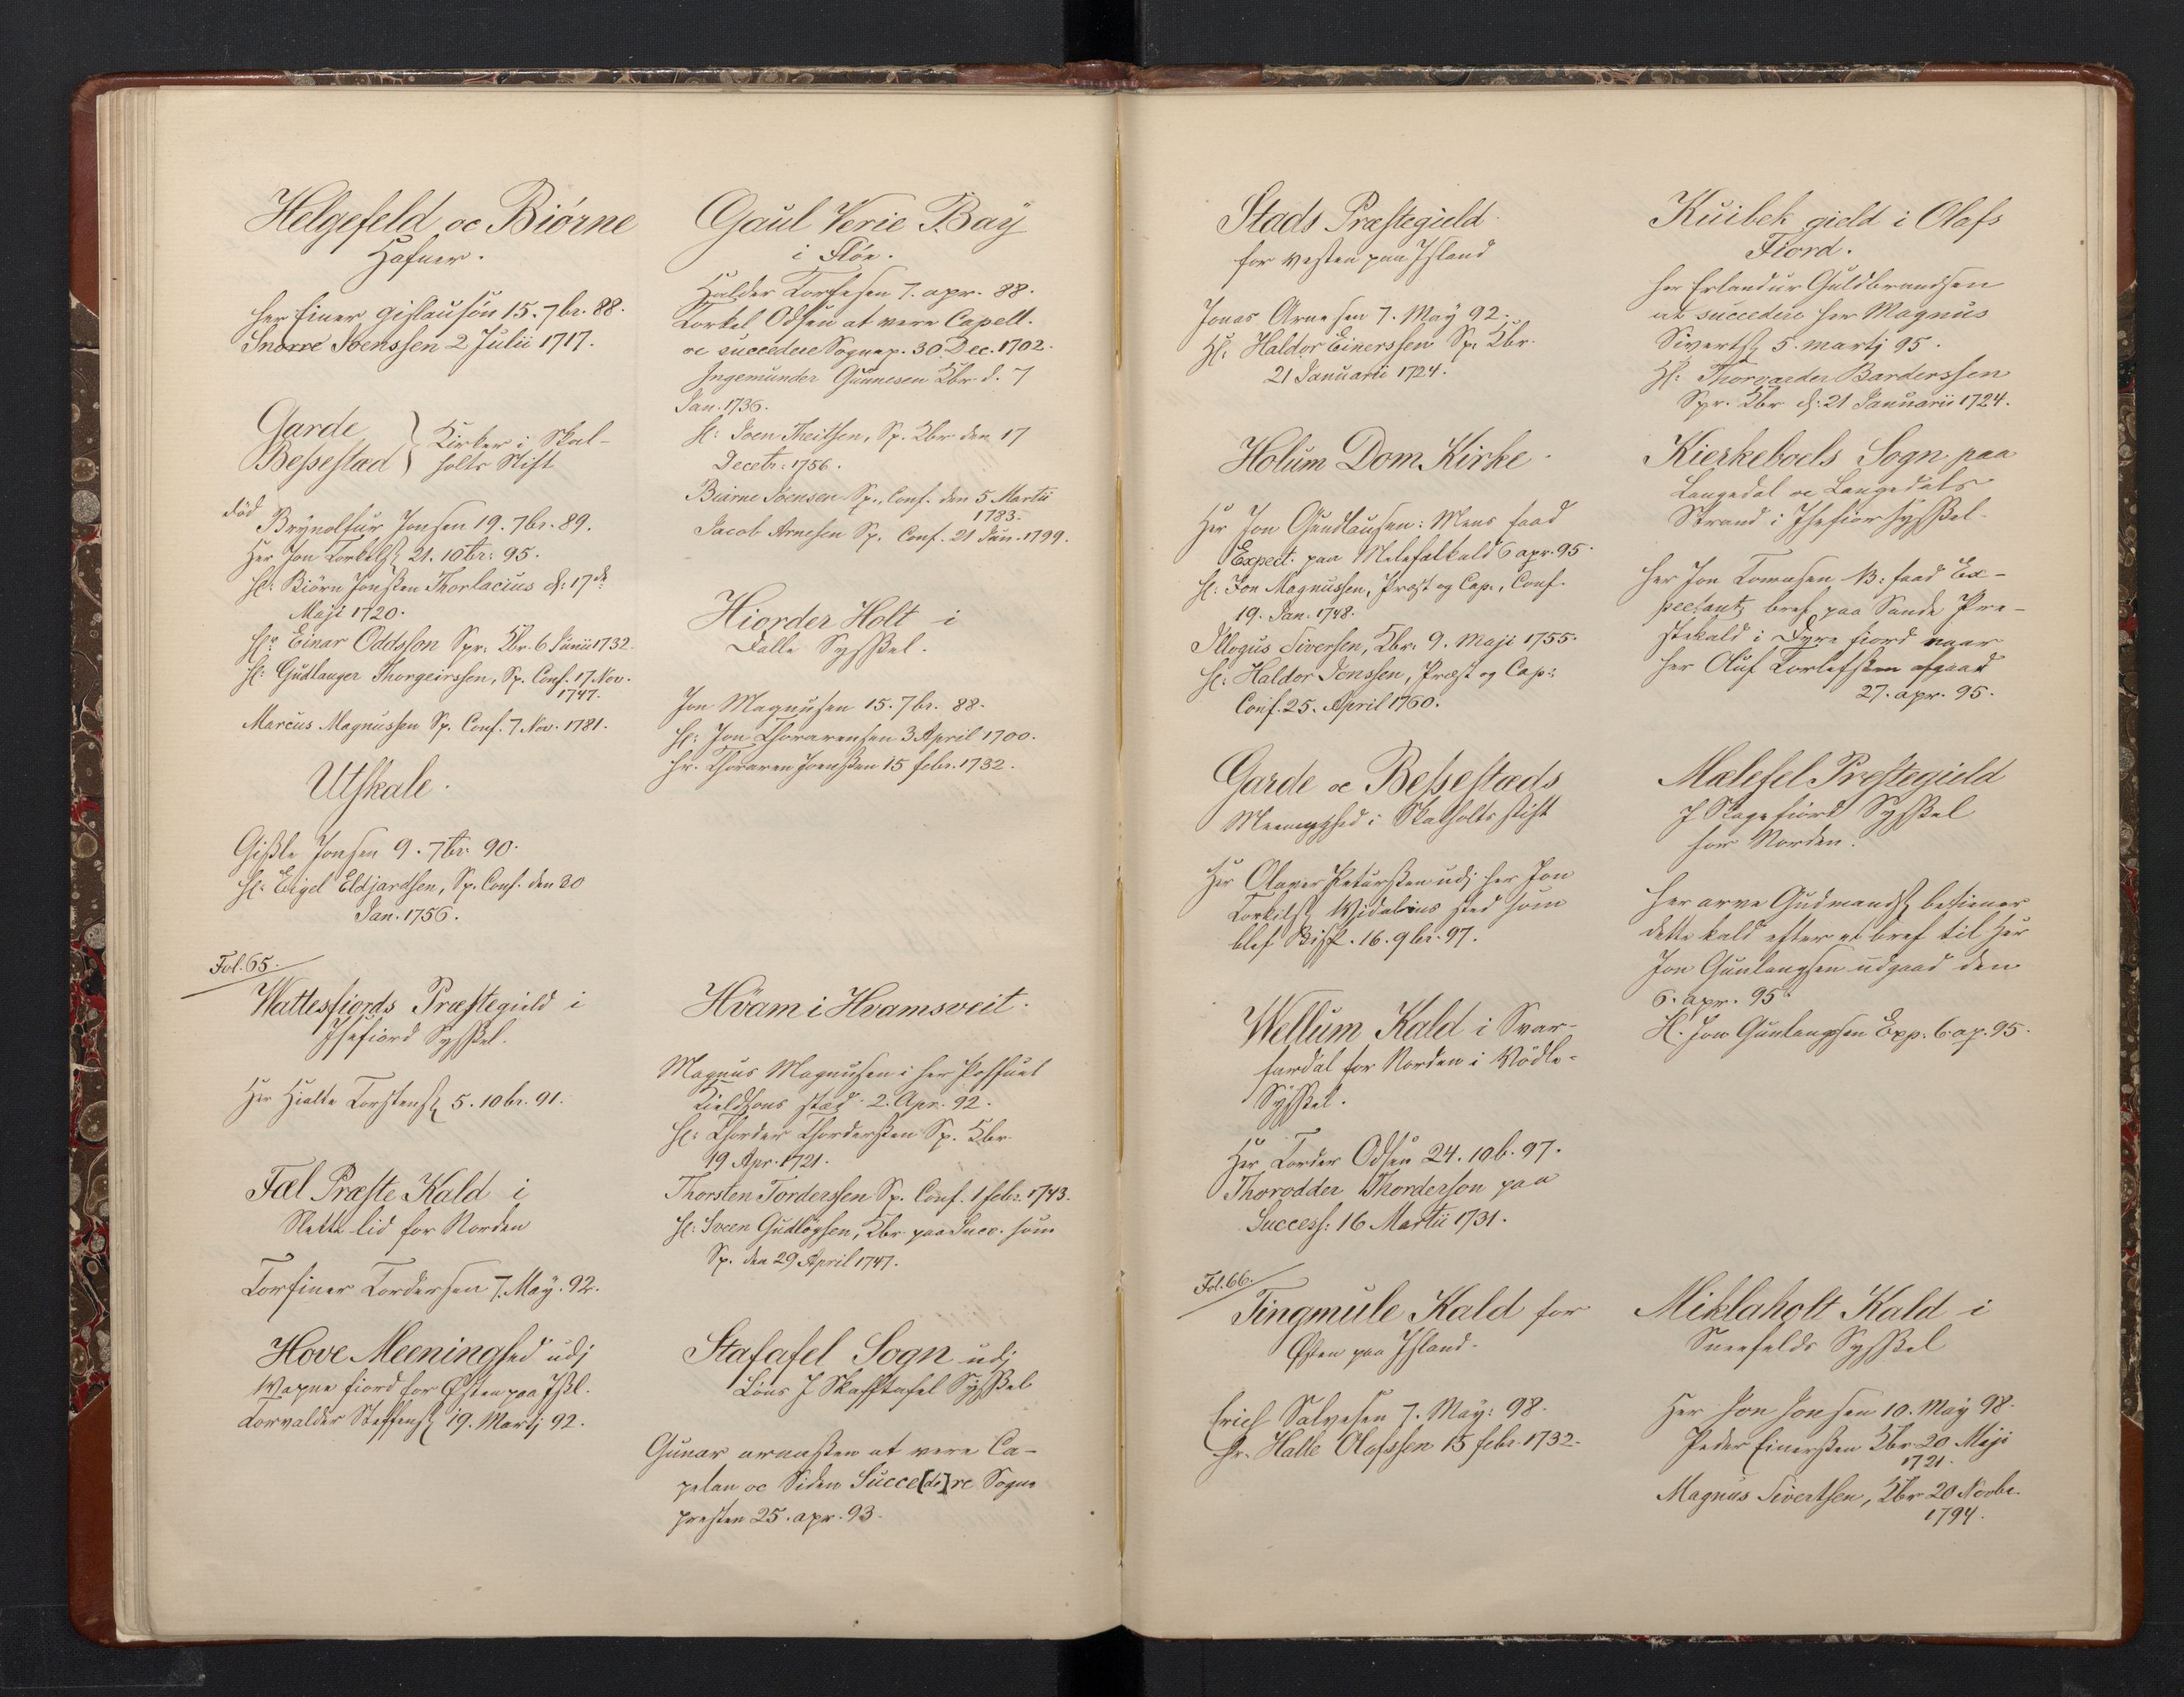 Helgefeld oc Biørne
Hafner.
her Einer gislausøn 15. 7br. 88.
Snorre Joenssen 2 Julii 1717.
Garde
Bessestad
Kirker i Skal-
holts Stift
død
Brynolfur Jonsen 19. 7br. 89.
Her Jon Torkels. 21. 10br: 95.
Hr: Biörn Jonssen Thorlacius d: 17de
Maji 1720.
Hr. Einar Oddsson Spr. Kbr. 6 Junii 1732.
Hr: Gudlauger Thorgeirssen, Sp. Conf. 17. Nov.
1747.
Marcus Magnussen Sp. Conf. 7. Nov. 1781.
Utskale.
Gisle Jonsen 9. 7br 90.
Hr: Eigel Eldjardsen, Sp. Conf. den 30
Jan. 1756.
Fol. 65.
Wattesfiords Præstegield i
Isefiord Syssel.
Her Hialte Torstens. 5. 10br. 91.
Fæl Præste Kald i
Slette lid for Norden
Torfiner Tordersen 7. May. 92.
Hove Meeninghed udj
Wapne fiord for Østen paa Isl.
Torvalder Steffens. 19. Martj 92.
Gaul Verie Bay
i Flöe.
Halder Torfesen 7. apr. 88.
Torkel Odsen at vere Capell.
oc succedere Sognep. 30 Dec. 1702.
Ingemunder Gunnesen Kbr d. 7
Jan. 1736.
Hr: Joen Theitsen, Sp. Kbr den 17
Decebr: 1756.
Biärne Joensen Sp., Conf. den 5 Martii
1783.
Jacob Arnesen Sp. Conf. 21 Jan. 1799.
Hiorder Holt i
Dalle Syssel.
Jon Magnusen 15. 7br. 88.
Hr: Jon Thorarensen 3 April 1700.
Hr. Thoraren Joenssen 15 febr. 1732.
Hvam i Hvamsveit.
Magnus Magnusen i her
Kieldsons sted 2. Apr. 92.
Hr: Thorder Thordersen Sp. Kbr
19 Apr. 1721.
Thorsten Torderssen Sp. Conf. 1 febr. 1743.
Hr: Sveen Gudlögsen, Kbr paa Succ. som
Sp. den 29 April 1747.
Stafafel Sogn udj
Lons J Skafftafel Syssel
Gunar arnassen at vere Ca-
pelan oc Siden Succe[de]re Sogne
presten 25. apr. 93.
Stads Præstegield
for vesten paa Island
Jonas Arnesen 7. May 92.
Hr. Haldor Einerssen Sp. Kbr.
21 Januarii 1724.
Holum Dom Kirke.
Her Jon Gundlausen: Mens faad
Expect. paa Melefelkald 6 apr. 95.
Hr: Jon Magnussen, Præst og Cap., Conf.
19. Jan. 1748.
Illogus Siversen, Kbr. 9. Maji 1755.
Hr: Haldor Jonssen, Præst og Cap:
Conf. 25. April 1760.
Garde oc Bessestads
Meenighed i Skalholts stift
Her Olaver Petursen udj her Jon
Torkils. Widalins sted som
blef Bisp. 16. 9br. 97.
Wellum Kald i Svar-
furdal for Norden i Vödle-
Syssel.
Her Torder Odsen 24. 10b. 97.
Thorodder Thorderson paa
Success: 16 Martii 1731.
Fol. 66.
Tingmule Kald for
Østen paa Island.
Erich Salvesen 7. May: 98.
Hr. Halle Olafssen 15 febr. 1732.
Kuibek gield i Olafs
Fiord.
her Erlandur Guldbrandsen
at succedere her Magnus
Siverts. 5. martj 95.
Hr: Thorvarder Barderssen
Spr. Kbr d: 21 Januarii 1724.
Kierkeboels Sogn paa
Langedal oc Langedals
Strand i Isefior Syssel.
her Jon Tomasen NB: faad Ex-
pectants bref paa Sande Pre-
stekald i Dyre fiord naar
her Oluf Torlefsen afgaad
27. apr. 95.
Mælefel Prestegield
J Skagefiord Syssel
for Norden.
Her arne Gudmands. betiener
dette kald efter et bref til Her
Jon Gunlaugsen udgaad den
6. apr. 95
H. Jon Gunlaugsen Exp. 6. ap. 95.
Miklaholt Kald i
Sneefelds Syssel
Her Jon Jonsen 10. May 98.
Peder Einerssen Kbr 20 Maji
1721.
Magnus Sivertsen, Kbr 20 Novbr.
1794.